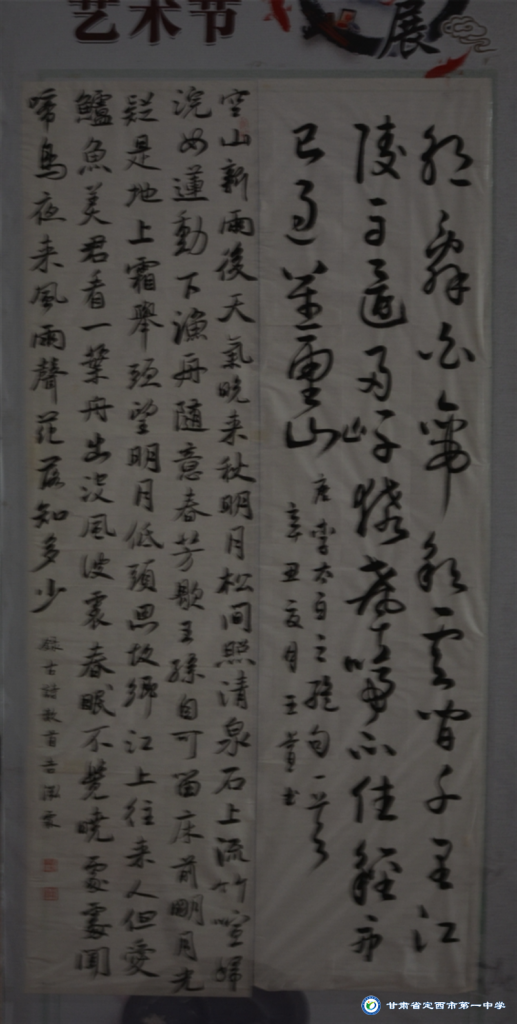 艺术节
展
朝辞白帝彩云间千里江
陵一日还两岸猿声啼不住轻舟
已过万重山
唐李太白之绝句一首
辛丑 月 王 书
空山新雨後天氣晚来秋明月松间照清泉石上流竹喧归
浣女蓮動下漁舟隨意春芳歇王孫自可留床前明月光
疑是地上霜舉頭望明月低頭思故鄉江上往来人但愛
鱸魚美君看一葉舟出没風波裏春眠不覺曉處處闻
啼鳥夜来風雨聲花落知多少
录古诗数首
甘肃省定西市第一中学